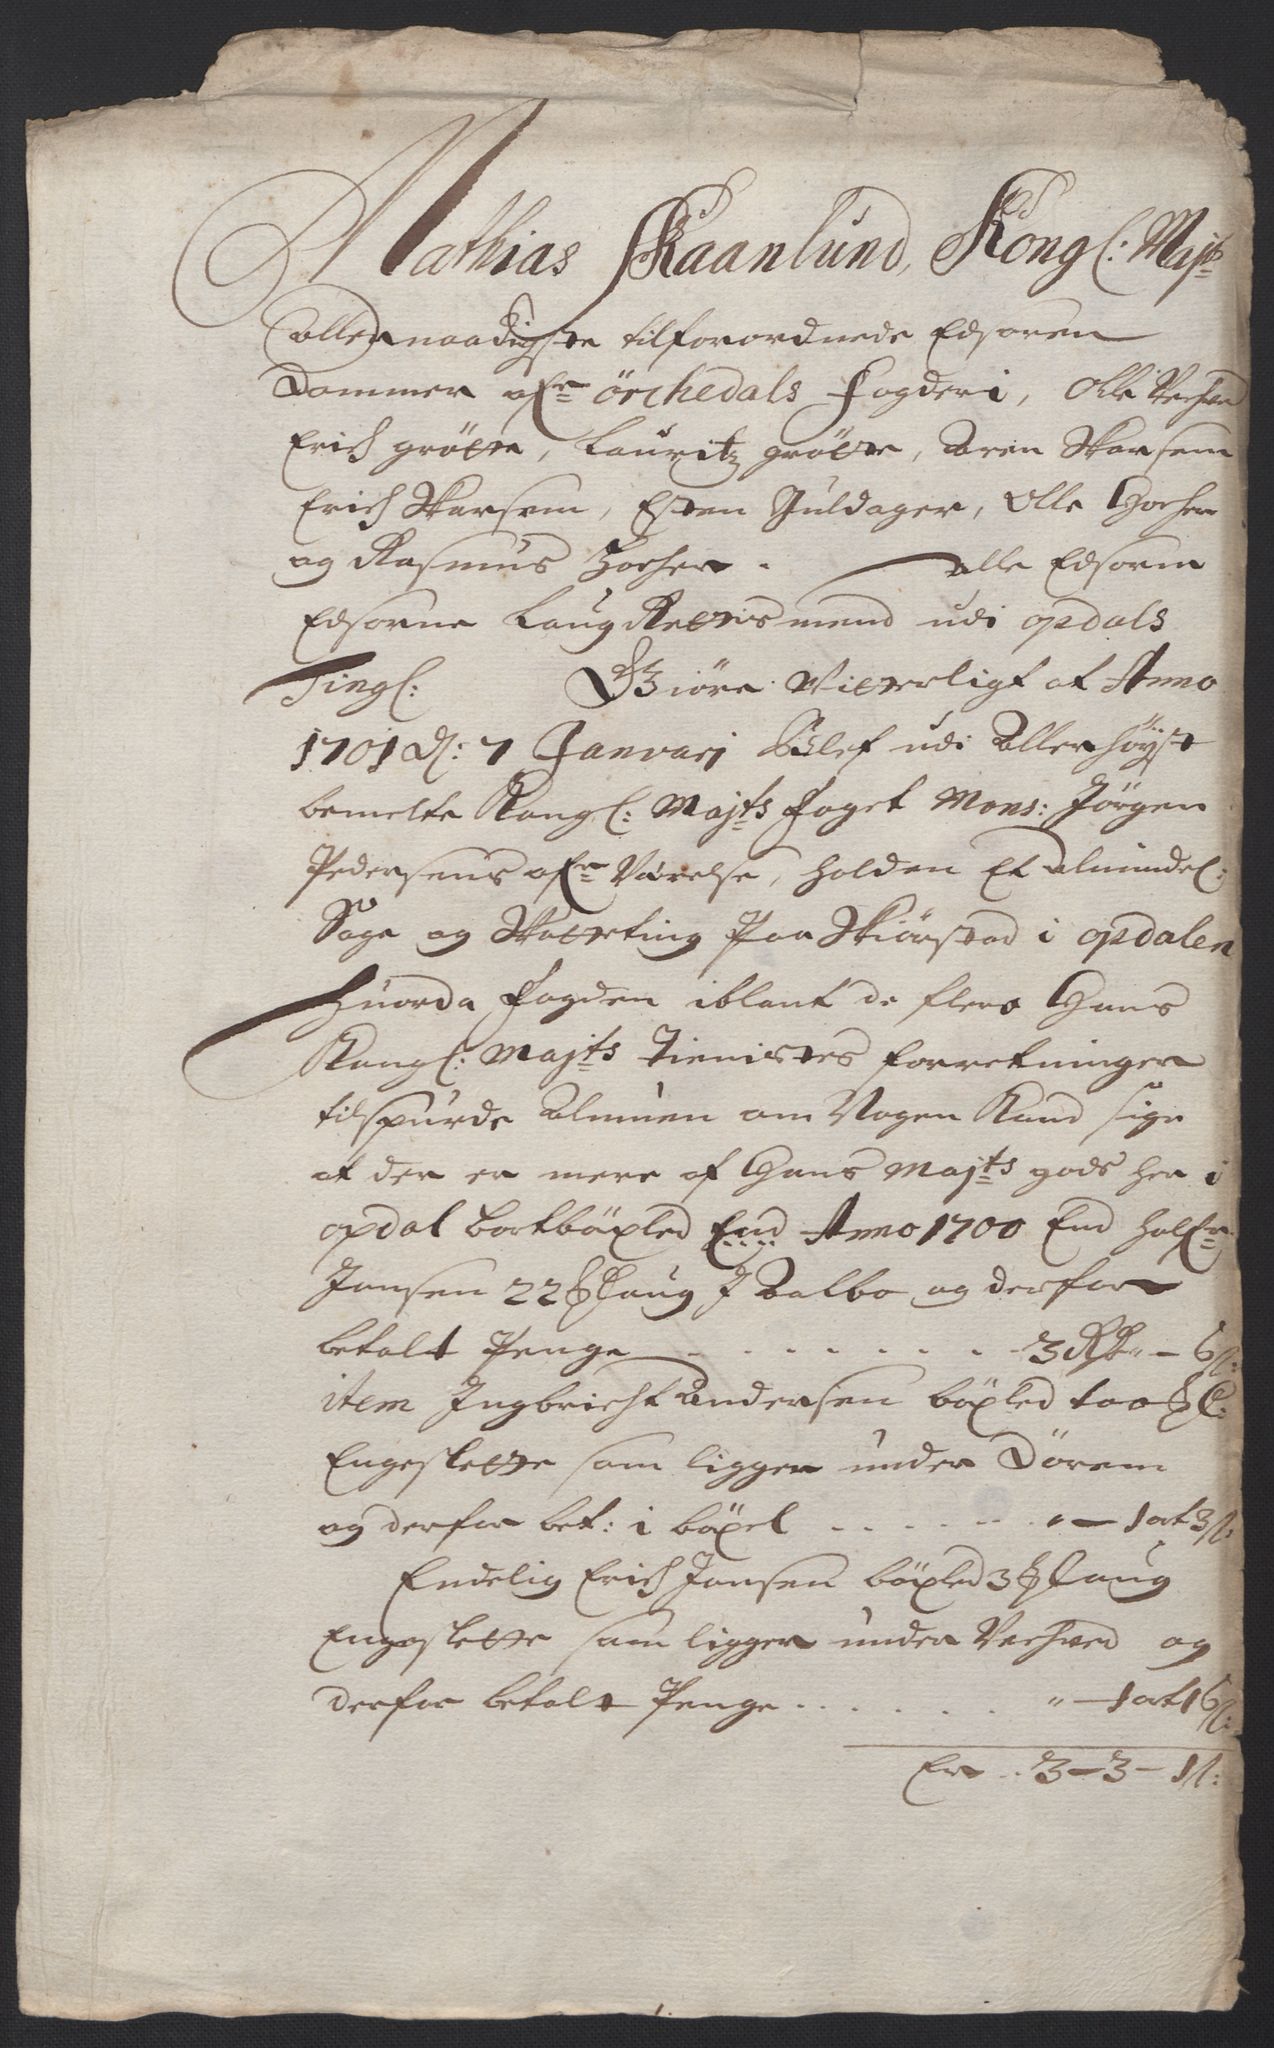 Mathias Skaanlund, Kongl: Majts
allernaadigste tilforordnede Edsoren
Dommer ofr Örchedals fogderi, Olle Vechved
Erich grötte, Lauritz grötte, Aren Skarsem
Erich Skarsem, Esten Guldager, Olle Horher
og Rasmus Horher. alle Edsorne
Edsorne Laug Rettismend udi opdals
Tingl: Giöre Vitterligt at Anno
1701 d: 7 Januarj blef udi Allerhöyst
bemelte Kongl: Majts foget Mons: Jörgen
Pedersens ofr Værelse, holden Et almindel:
Sage og Skatteting Paa Skiörstad i opdalen
Huorda fogden iblant de flere Hans
Kongl: Majts Tienistes forretninger
tilspurde Almuen om Nogen Kand sige
at der er mere af Hans Majts gods her i
opdal bortböxled End Anno 1700 End Halfr
Jonsen 22 Laug J Aalbo og derfor
betalt Penge . . . . . . . . 3 Rd " – 6 s:
item Jngbricht Andersen böxled too L:
Engeslette som ligger under Dörem
og derfor bet: i böxel . . . . . . " – 1 ort 3 s:
Endelig Erich Jonsen böxled 3 Laug
Engeslette som ligger under Vechved og
derfor betalt Penge . . . . . . " – 1 ort 16 s:
Er . . 3 – 3 – 1 s: